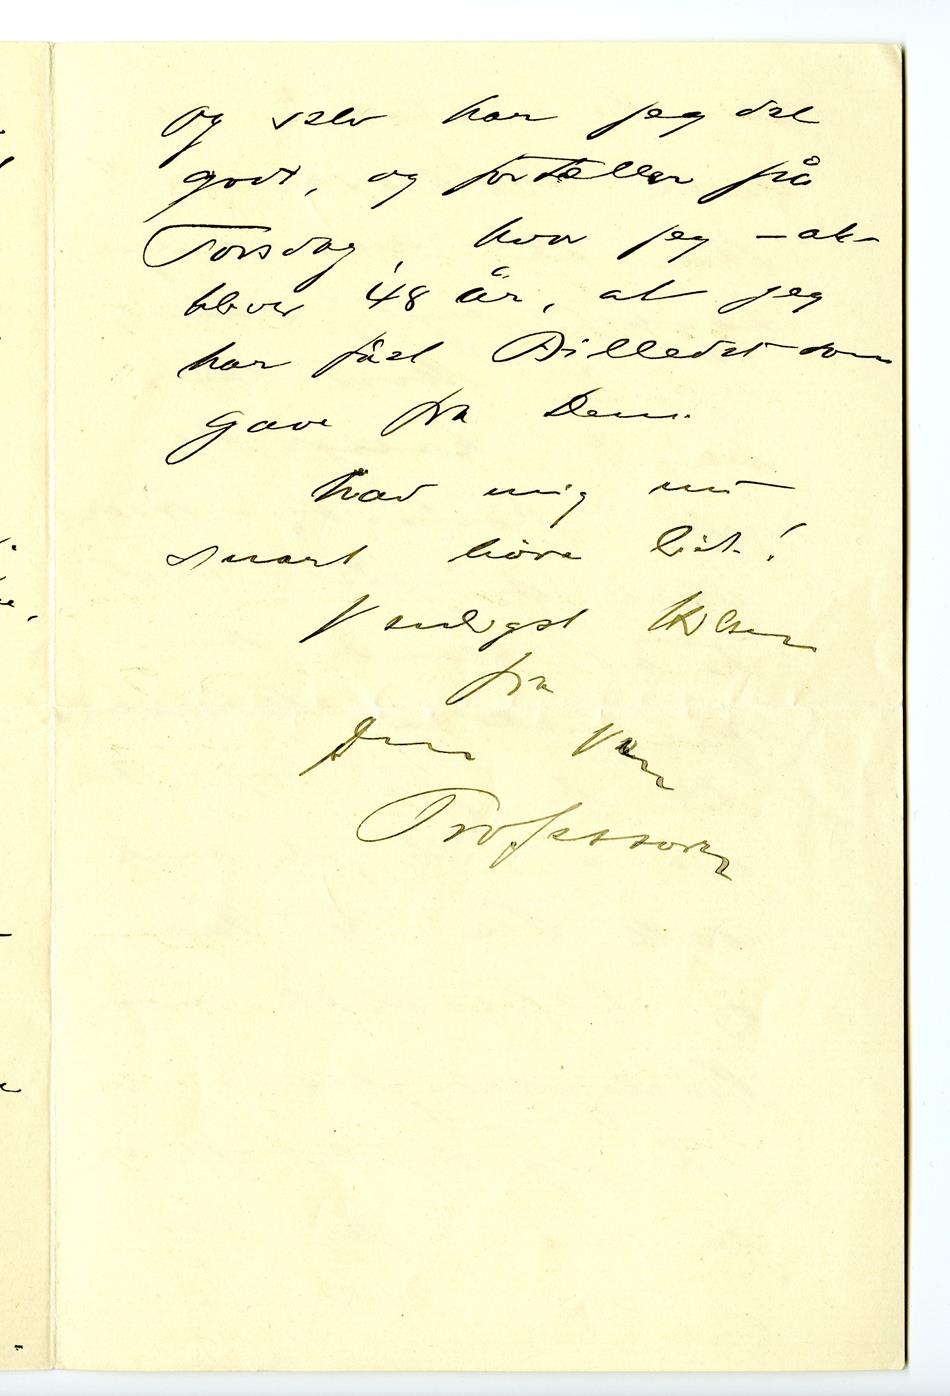 og selv har jeg det
godt, og fortæller på
Torsdag, hvor jeg – ak –
bliver 48 år, at jeg
har fået Billedet som
gave fra Dem.
Lad mig nu
snart høre lidt!
Venligst Hilsen
fra
Deres Ven
Professoren